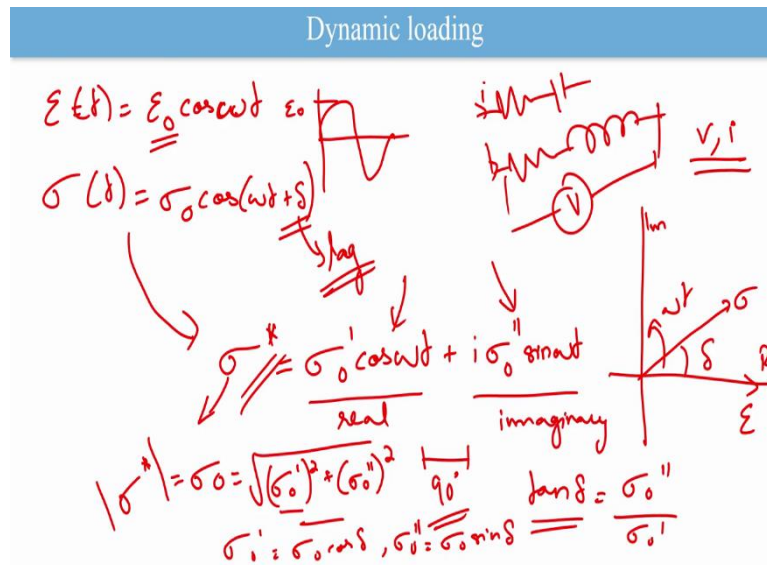 Dynamic loading
ε(t) = ε₀ cosωt
ε₀
σ(t) = σ₀ cos(ωt + δ)
lag
V
v, i
σ* = σ₀' cosωt + i σ₀'' sinωt
real
immaginary
Im
ωt
σ
δ
R
ε
|σ*| = σ₀ = √(σ₀')² + (σ₀'')²
90°
tanδ = σ₀'' / σ₀'
σ₀' = σ₀ cosδ, σ₀'' = σ₀ sinδ